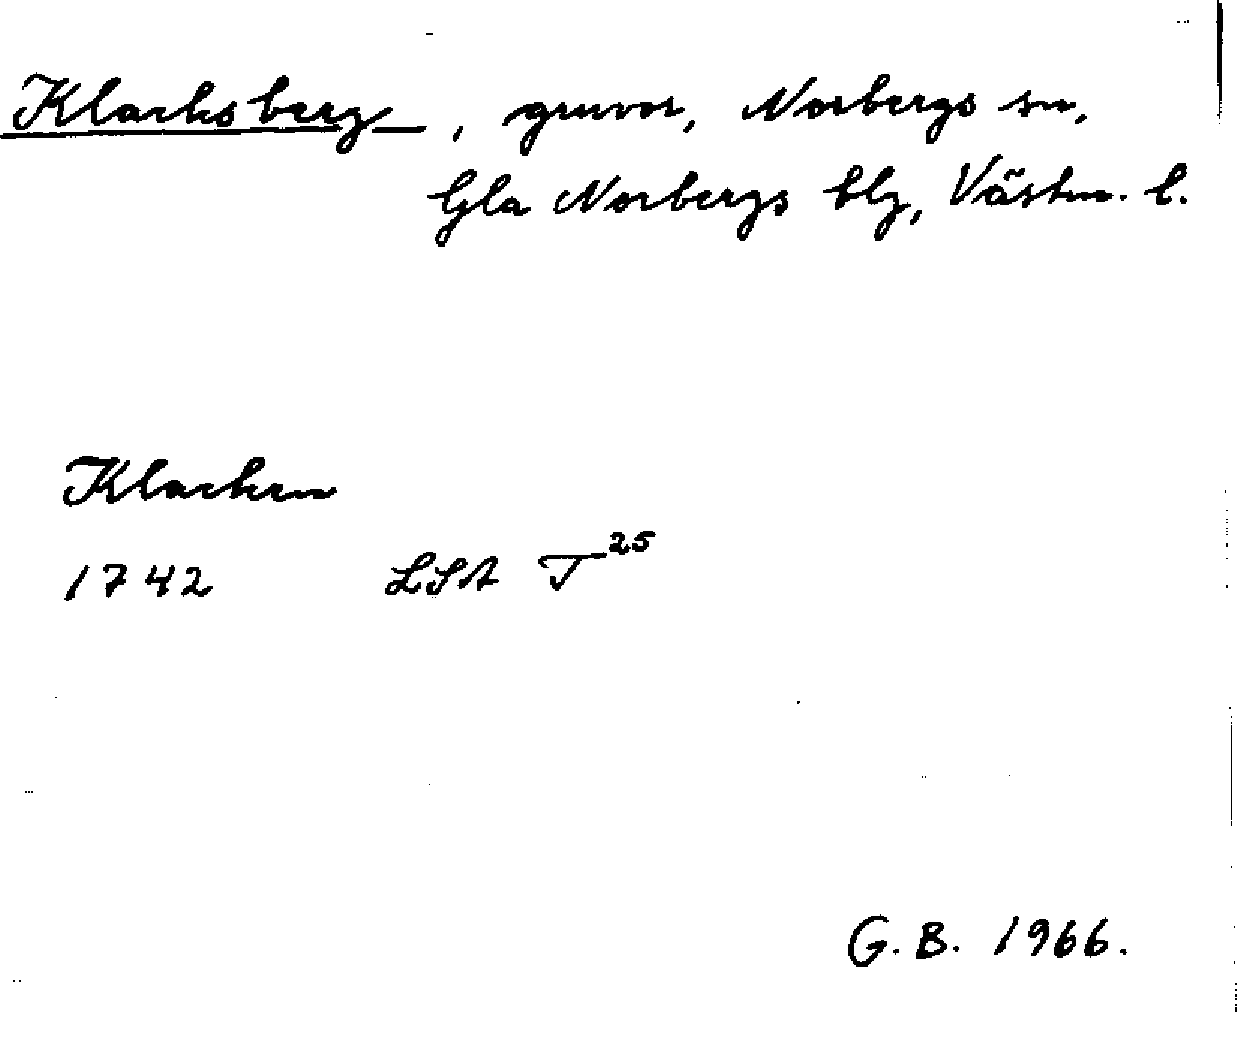 Klacksberg, gruvor, Norbergs sn,
Gla Norbergs blg, Västm. l.
Klacken
1742 LSA T 25
G. B. 1966.